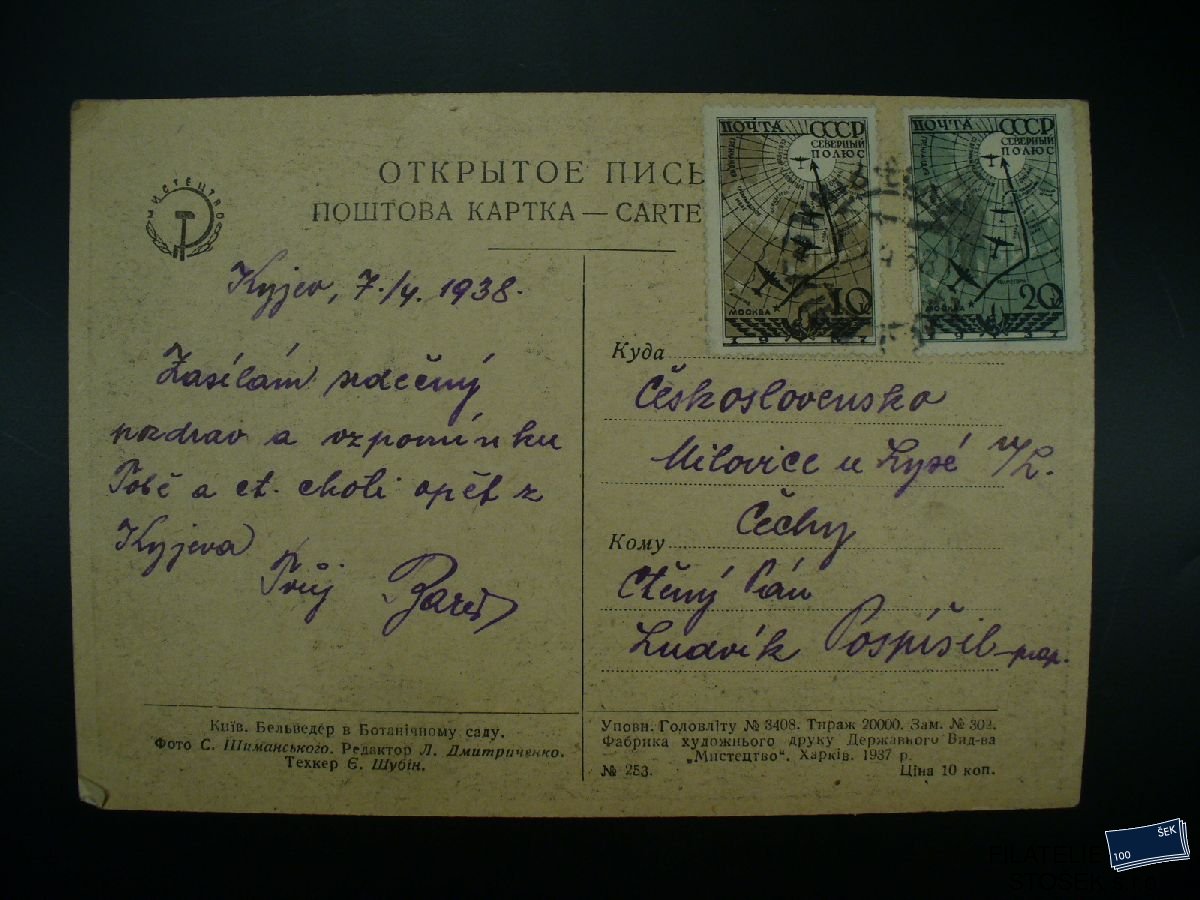 ОТКРЫТОЕ ПИСЬ
ПОШТОВА КАРТКА — CARTE
МИСТЕЦТВО
ПОЧТА СССР
СЕВЕРНЫЙ
ПОЛЮС
МОСКВА
10
1937
ПОЧТА СССР
СЕВЕРНЫЙ
ПОЛЮС
МОСКВА
20
1937
Kyjev, 7./4. 1938.
Zasílám srdečný
pozdrav a vzpomínku
Tobě a ct. choti opět z
Kyjeva
Tvůj
Куда
Československo
Milovice u Lysé n/L.
Čechy
Кому
Ctěný Pán
Ludvík Pospíšil
Київ. Бельведер в Ботанічному саду.
Фото С. Шиманського. Редактор Л. Дмитриченко.
Техкер Є. Шубін.
Уповн. Головліту № 3408. Тираж 20000. Зам. № 302.
Фабрика художнього друку Державного Вид-ва
„Мистецтво“. Харків. 1937 р.
№ 253. Ціна 10 коп.
ŠEK
100
FILATELIE